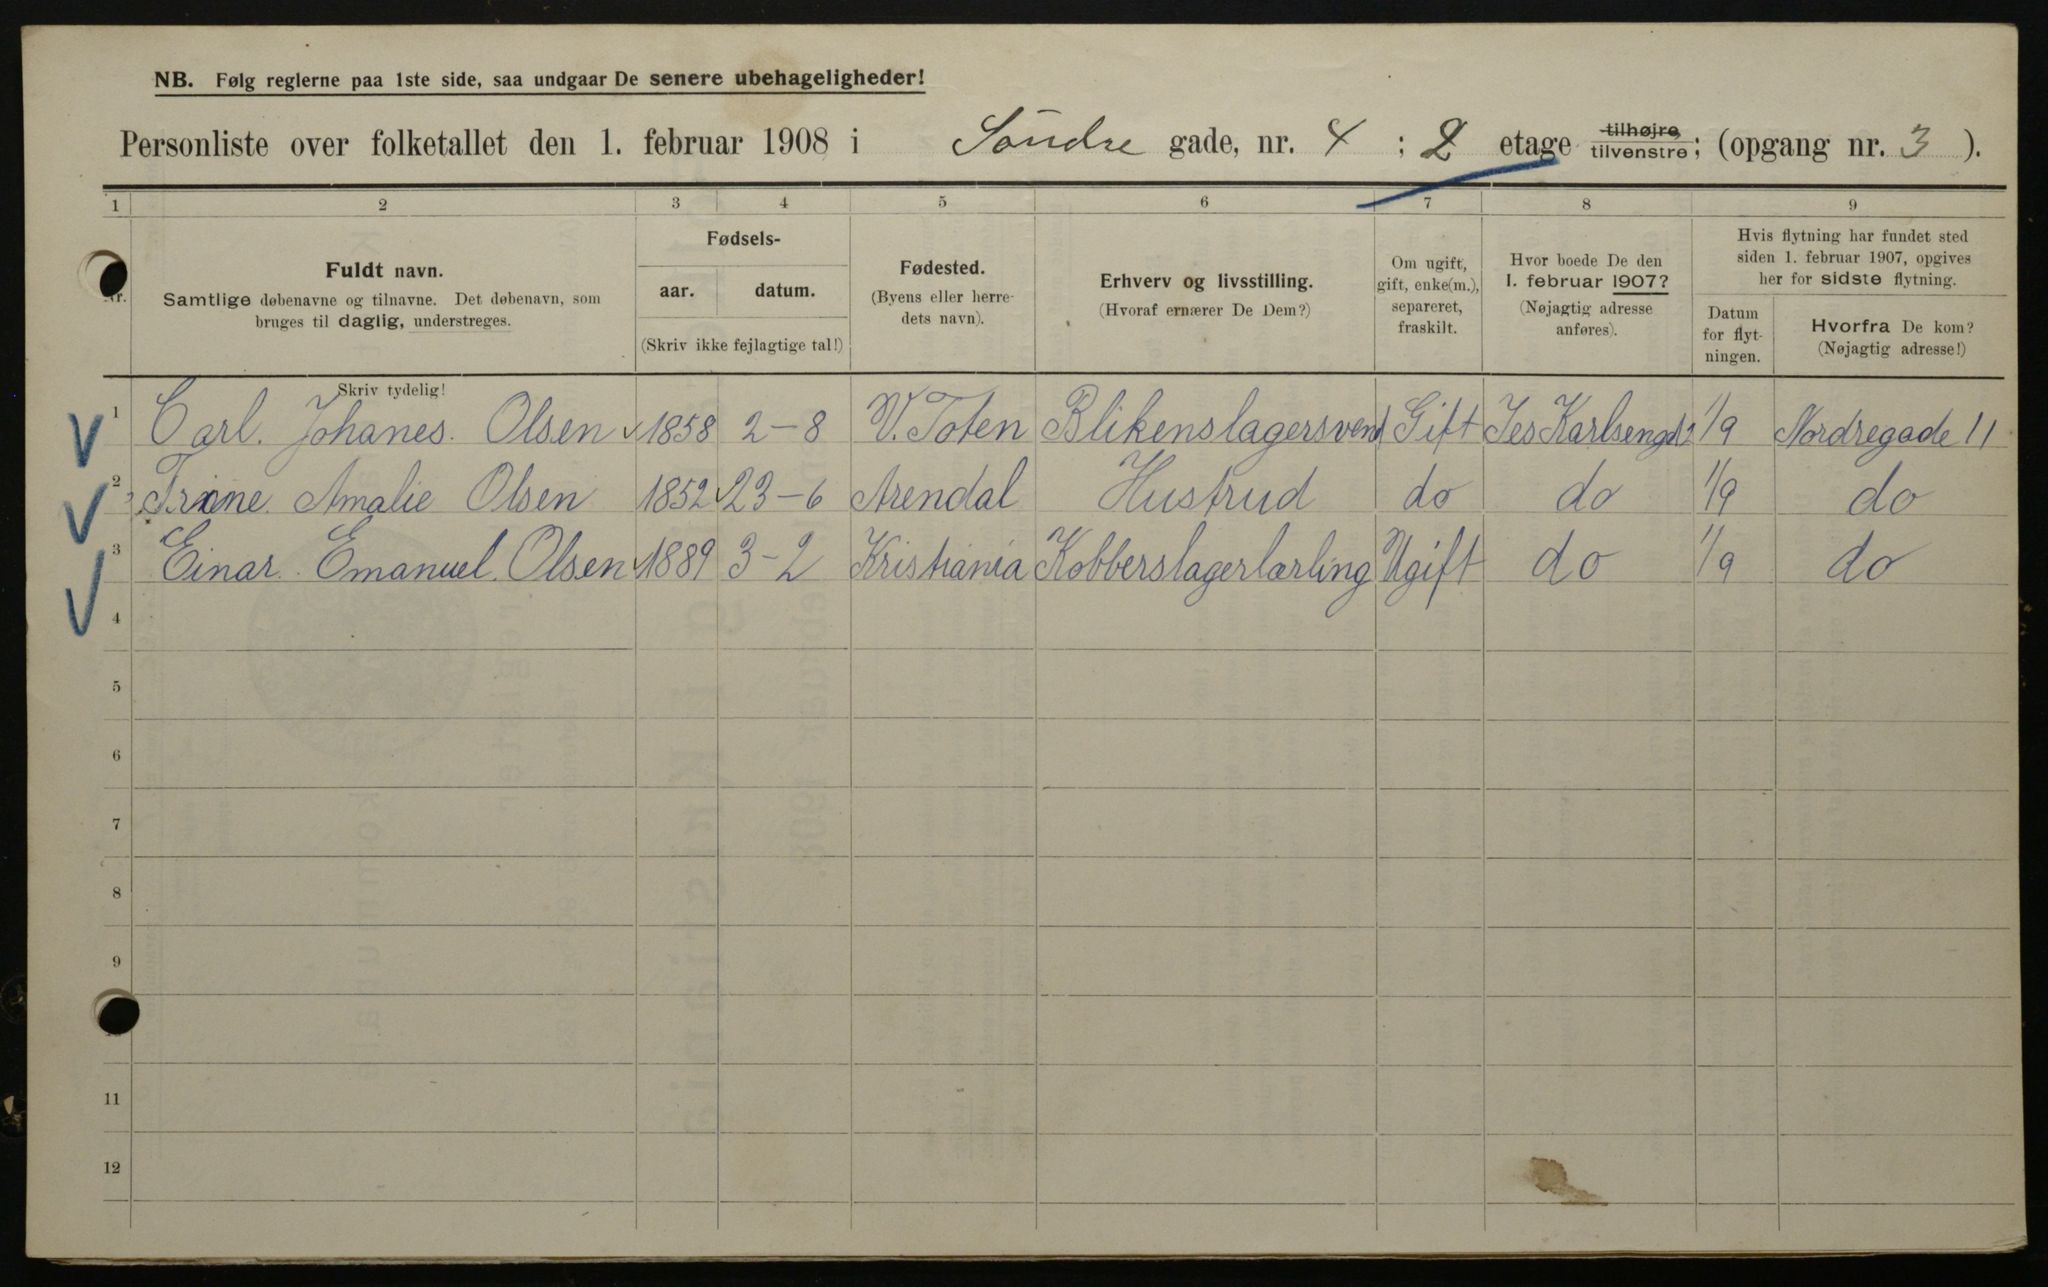 NB. Følg reglerne paa 1ste side, saa undgaar De senere ubehageligheder!
Personliste over folketallet den 1. februar 1908 i Söndre gade, nr. 4 ; 2 etage tilhøjre tilvenstre ; (opgang nr. 3 ).
1 2 3 4 5 6 7 8 9
Nr.
Fuldt navn.
Samtlige døbenavne og tilnavne. Det døbenavn, som
bruges til daglig, understreges.
Fødsels-
aar. datum.
(Skriv ikke fejlagtige tal!)
Fødested.
(Byens eller herre-
dets navn).
Erhverv og livsstilling.
(Hvoraf ernærer De Dem?)
Om ugift,
gift, enke(m.),
separeret,
fraskilt.
Hvor boede De den
1. februar 1907?
(Nøjagtig adresse
anføres).
Hvis flytning har fundet sted
siden 1. februar 1907, opgives
her for sidste flytning.
Datum
for flyt-
ningen.
Hvorfra De kom?
(Nøjagtig adresse!)
Skriv tydelig!
1 Carl. Johanes. Olsen 1858 2-8 V. Toten Blikenslagersvend Gift 1/9 Nordregade 11
2 Trine. Amalie Olsen 1852 23-6 Arendal Hustrud do do 1/9 do
3 Einar. Emanuel. Olsen 1889 3-2 Kristiania Kobberslagerlærling Ugift do 1/9 do
4
5
6
7
8
9
11
12